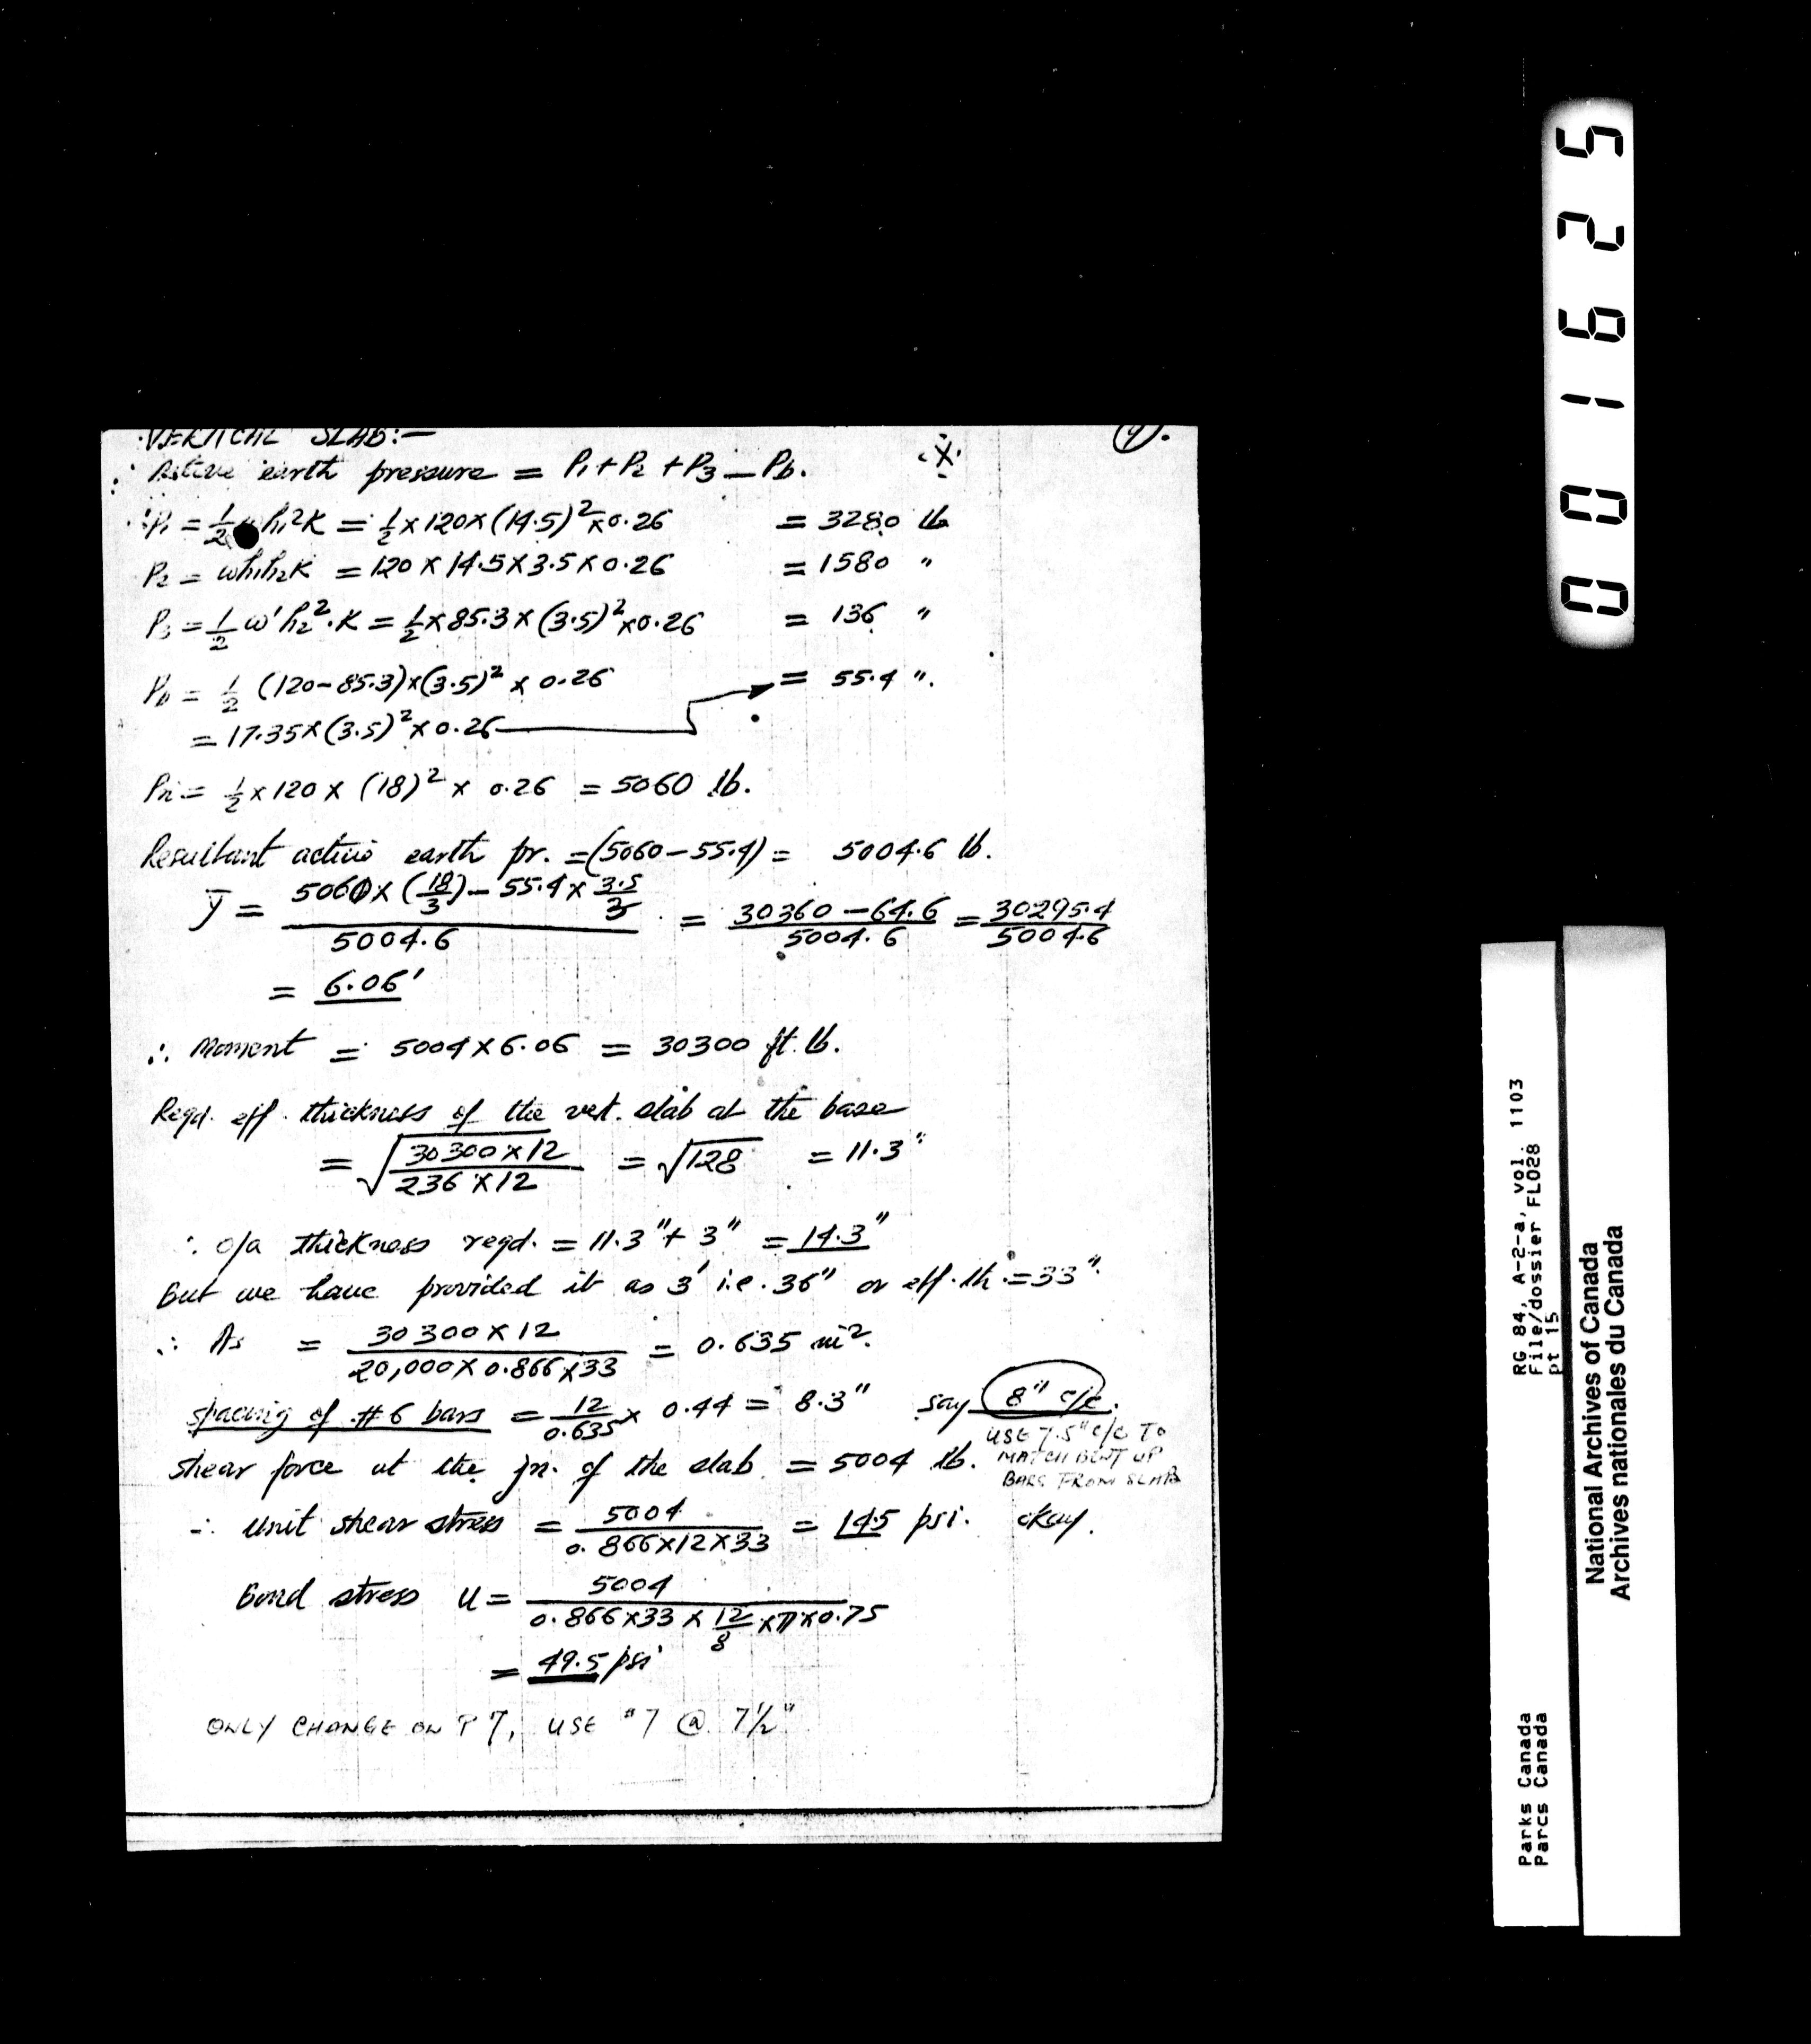 VERTICAL SLAB:— (9).
∴ Active earth pressure = P1 + P2 + P3 — Pb. X
∴ P1 = 1/2 w h1²K = 1/2 x 120 x (14.5)² x 0.26 = 3280 lb
P2 = wh1h2K = 120 x 14.5 x 3.5 x 0.26 = 1580 "
P3 = 1/2 w' h2².K = 1/2 x 85.3 x (3.5)² x 0.26 = 136 "
Pb = 1/2 (120-85.3) x (3.5)² x 0.26 = 55.4 ".
= 17.35 x (3.5)² x 0.26
= 1/2 x 120 x (18)² x 0.26 = 5060 lb.
Resultant active earth pr. = (5060-55.4) = 5004.6 lb.
ȳ = (5060 x (18/3) - 55.4 x 3.5/3) / 5004.6 = (30360 - 64.6) / 5004.6 = 30295.4 / 5004.6
= 6.06'
∴ Moment = 5004 x 6.06 = 30300 ft. lb.
Reqd. eff. thickness of the vert. slab at the base
= √(30300 x 12 / 236 x 12) = √128 = 11.3"
∴ o/a thickness reqd. = 11.3" + 3" = 14.3"
But we have provided it as 3' i.e. 36" or eff. th. = 33".
∴ As = 30300 x 12 / 20,000 x 0.866 x 33 = 0.635 in².
spacing of #6 bars = 12/0.635 x 0.44 = 8.3" say 8" c/c.
USE 7.5" c/c TO
MATCH BENT UP
BARS FROM SLAB
shear force at the jn. of the slab = 5004 lb.
∴ Unit shear stress = 5004 / 0.866 x 12 x 33 = 14.5 psi. okay.
Bond stress u = 5004 / 0.866 x 33 x 12/8 x π x 0.75
= 49.5 psi
ONLY CHANGE ON P 7, USE #7 @ 7½"
001625
RG 84, A-2-a, vol. 1103
File/dossier FLO28
pt 15
Parks Canada
Parcs Canada
National Archives of Canada
Archives nationales du Canada